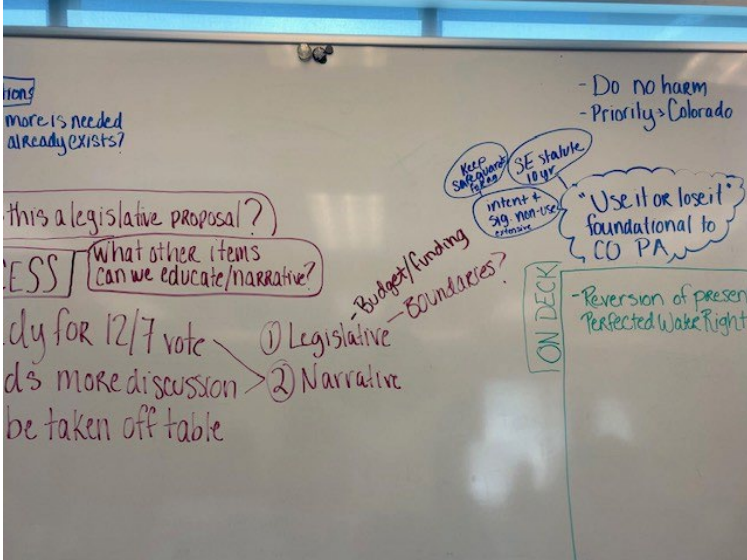 tions
more is needed
already exists?
this a legislative proposal?
CESS
What other items
can we educate/narrative?
dy for 12/7 vote
ds more discussion
be taken off table
① Legislative
② Narrative
- Budget/funding
- Boundaries?
- Do no harm
- Priority > Colorado
Keep
safeguards
SE statute
10 yr
intent &
sig. non-use
extensive
"Use it or lose it"
foundational to
CO PA
ON DECK
- Reversion of presen
Perfected Water Right